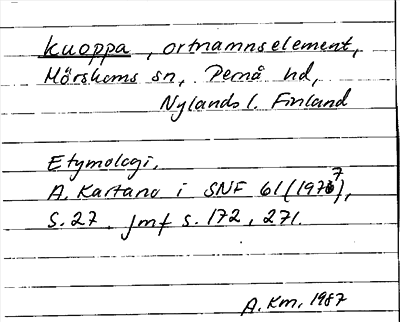 kuoppa, ortnamnselement,
Mörskoms sn, Pernå hd,
Nylands l. Finland
Etymologi.
A. Kartano i SNF 61 (1977),
S. 27. Jmf s. 172, 271.
A. Km. 1987